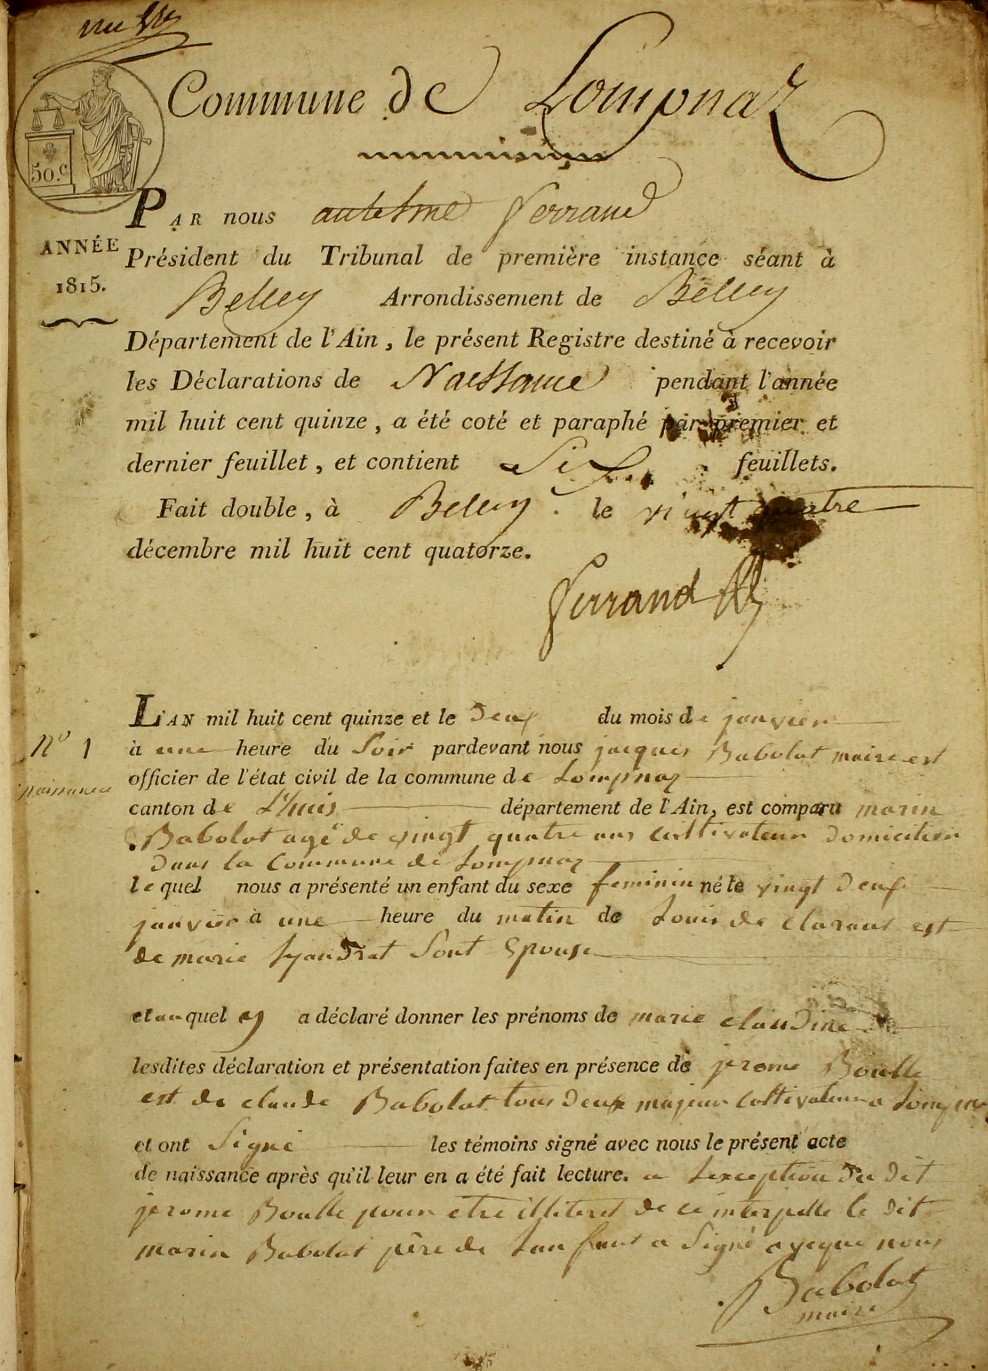 Commune de Lompnaz
50.c
PAR nous antelme ferrand
ANNÉE
1815.
Président du Tribunal de première instance séant à
Belley Arrondissement de Belley
Département de l'Ain, le présent Registre destiné à recevoir
les Déclarations de Naissance pendant l'année
mil huit cent quinze, a été coté et paraphé par premier et
dernier feuillet, et contient Six feuillets.
Fait double, à Belley le vingt quatre
décembre mil huit cent quatorze.
ferrand
L'AN mil huit cent quinze et le deux du mois de janvier
N° 1
naissance
à une heure du Soir pardevant nous jacques Babolat maire est
officier de l'état civil de la commune de Lompnaz
canton de L'huis département de l'Ain, est comparu marin
Babolat agé de vingt quatre ans Cultivateur domicilier
dans la Commune de Lompnaz
lequel nous a présenté un enfant du sexe feminin né le vingt deux
janvier à une heure du matin de Louis de est
de marie Sont Epouse
et auquel a déclaré donner les prénoms de marie claudine
lesdites déclaration et présentation faites en présence de jerome Boulle
est de claude Babolat tous deux majeur Coltivateur a Lompnaz
et ont Signé les témoins signé avec nous le présent acte
de naissance après qu'il leur en a été fait lecture. a Lexception du dit
jerome Boulle pour etre illiteret de ce interpelle le dit
marin Babolat père de Lan fant a Signé aveque nous
Babolat
maire